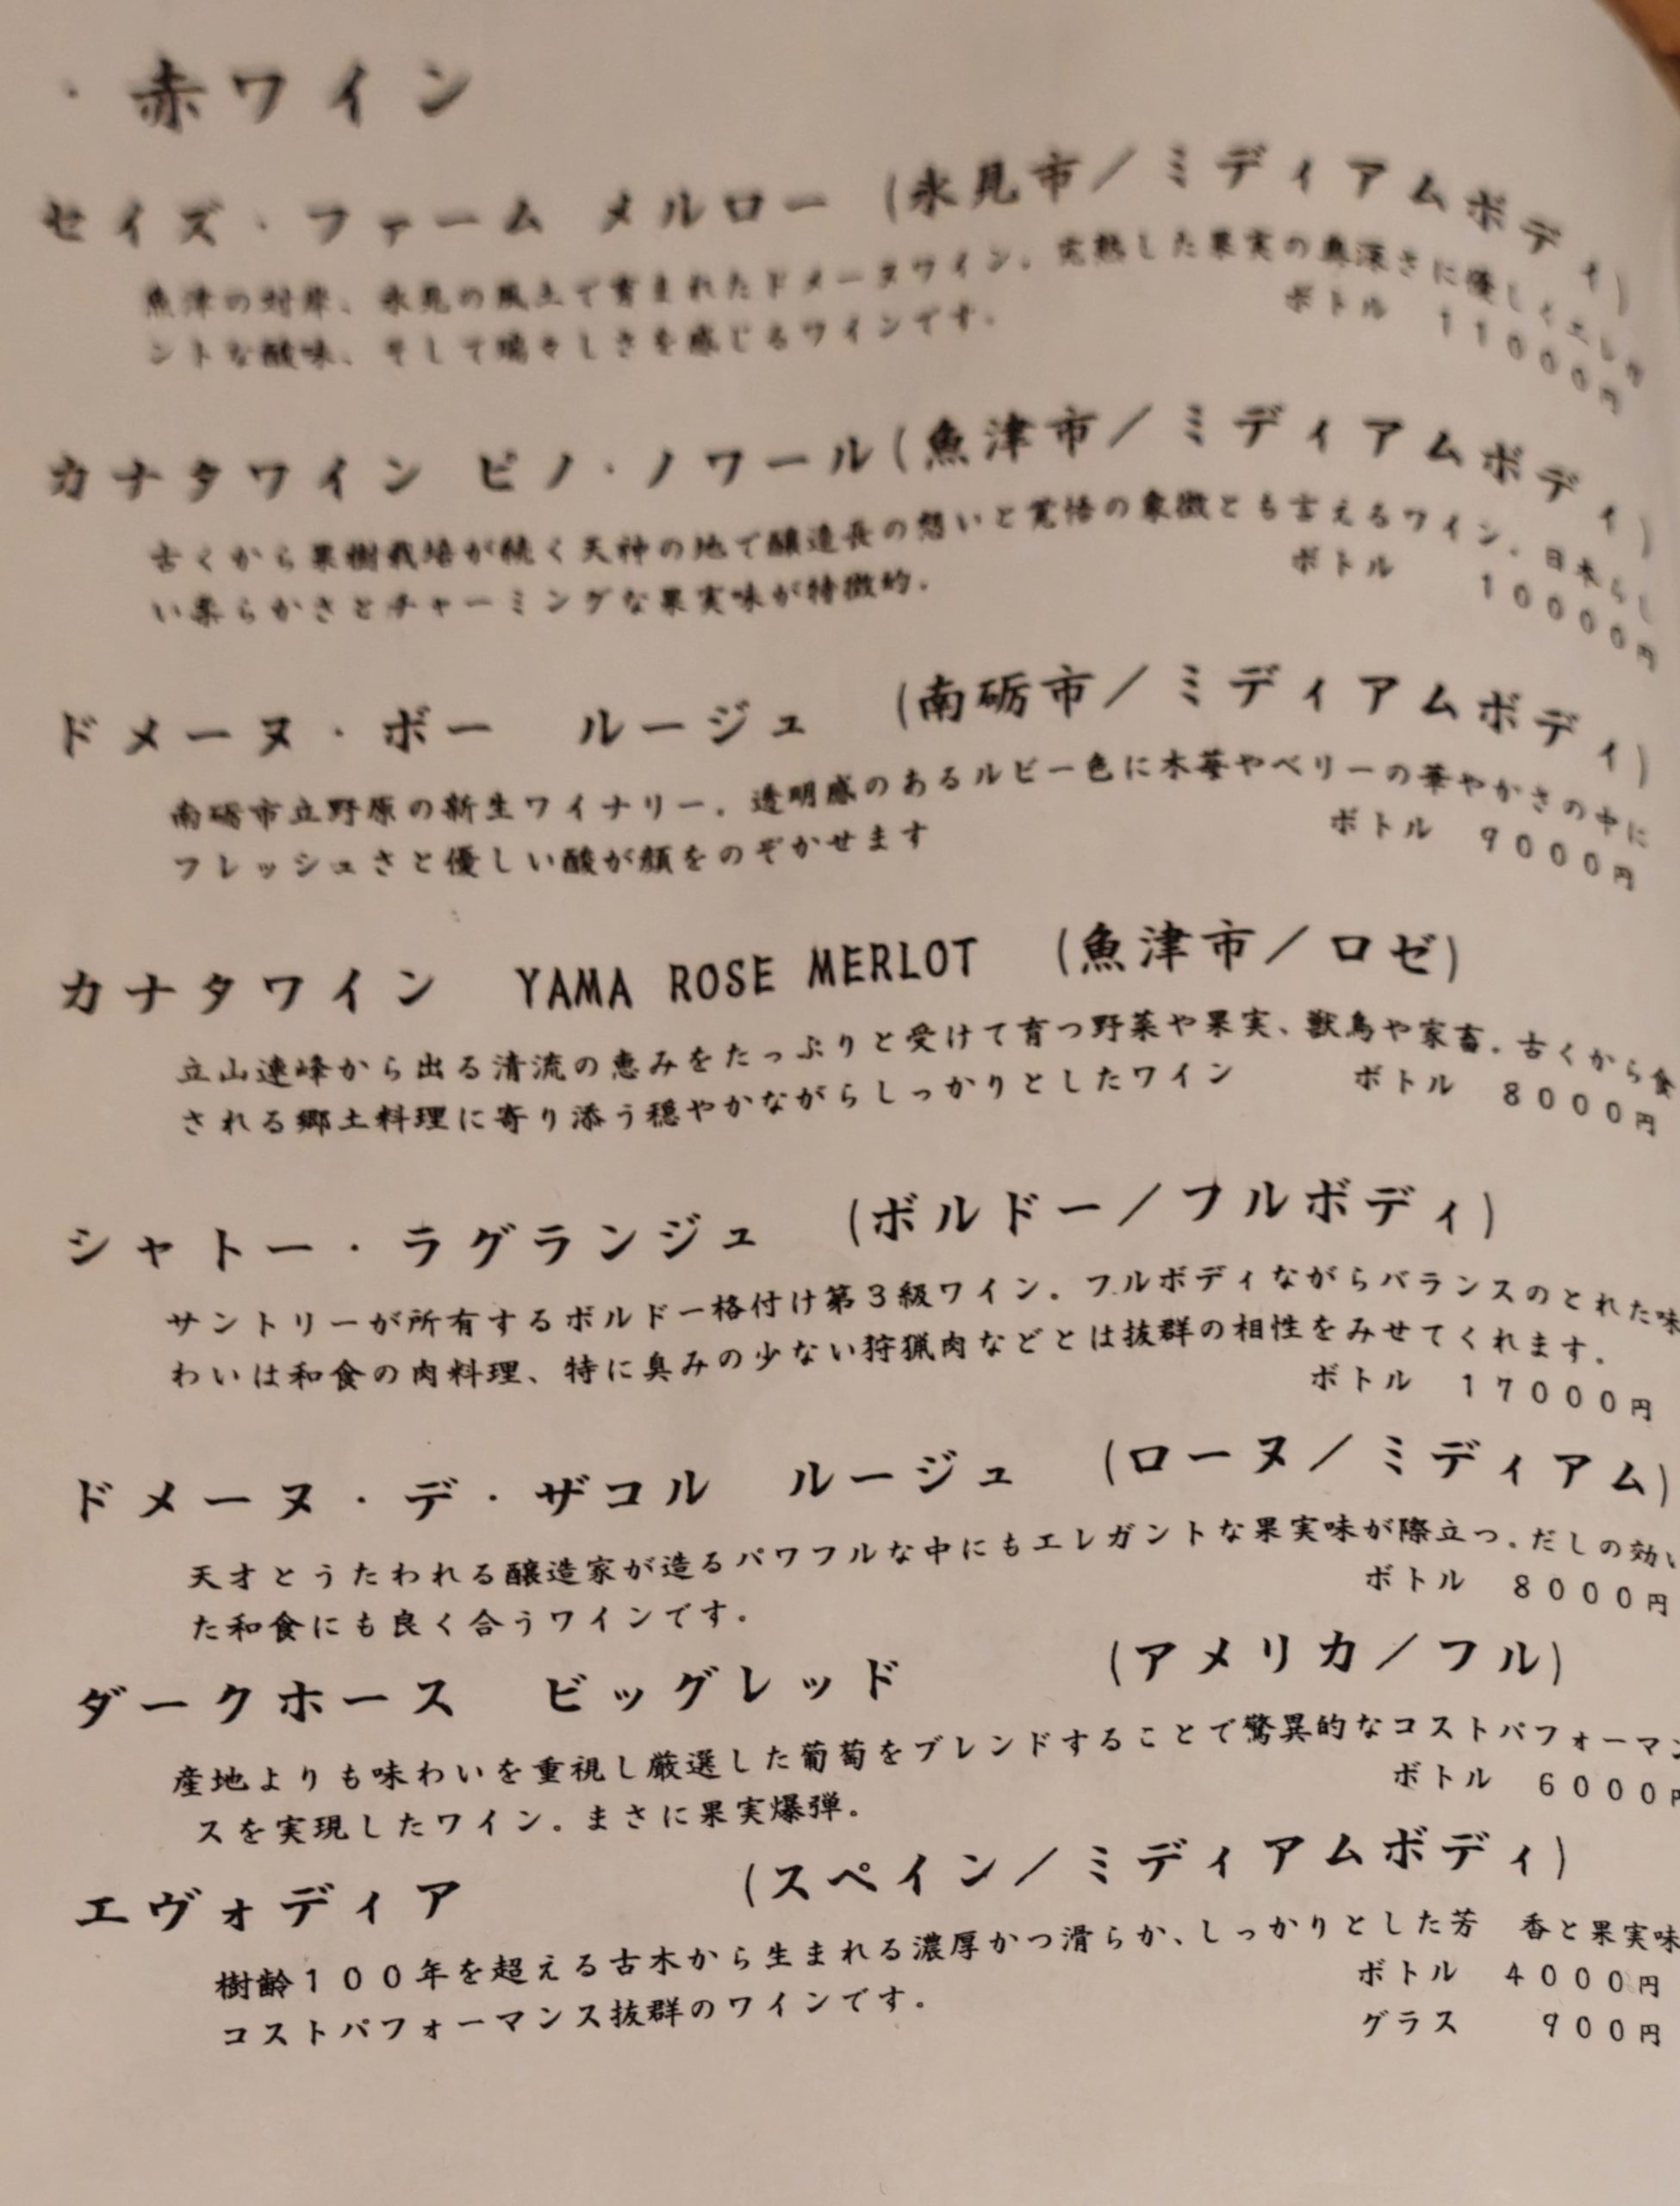 ・赤ワイン
セイズ・ファーム メルロー (氷見市／ミディアムボディ)
魚津の対岸、氷見の風土で育まれたドメーヌワイン。完熟した果実の奥深さに優しくエレガ
ントな酸味、そして瑞々しさを感じるワインです。
ボトル 11000円
カナタワイン ピノ・ノワール(魚津市／ミディアムボディ)
古くから果樹栽培が続く天神の地で醸造長の想いと覚悟の象徴とも言えるワイン。日本らし
い柔らかさとチャーミングな果実味が特徴的。
ボトル 10000円
ドメーヌ・ボー ルージュ (南砺市／ミディアムボディ)
南砺市立野原の新生ワイナリー。透明感のあるルビー色に木苺やベリーの華やかさの中に
フレッシュさと優しい酸が顔をのぞかせます
ボトル 9000円
カナタワイン YAMA ROSE MERLOT (魚津市／ロゼ)
立山連峰から出る清流の恵みをたっぷりと受けて育つ野菜や果実、獣鳥や家畜。古くから食
される郷土料理に寄り添う穏やかながらしっかりとしたワイン
ボトル 8000円
シャトー・ラグランジュ (ボルドー／フルボディ)
サントリーが所有するボルドー格付け第3級ワイン。フルボディながらバランスのとれた味
わいは和食の肉料理、特に臭みの少ない狩猟肉などとは抜群の相性をみせてくれます。
ボトル 17000円
ドメーヌ・デ・ザコル ルージュ (ローヌ／ミディアム)
天才とうたわれる醸造家が造るパワフルな中にもエレガントな果実味が際立つ。だしの効い
た和食にも良く合うワインです。
ボトル 8000円
ダークホース ビッグレッド (アメリカ／フル)
産地よりも味わいを重視し厳選した葡萄をブレンドすることで驚異的なコストパフォーマン
スを実現したワイン。まさに果実爆弾。
ボトル 6000円
エヴォディア (スペイン／ミディアムボディ)
樹齢100年を超える古木から生まれる濃厚かつ滑らか、しっかりとした芳 香と果実味
コストパフォーマンス抜群のワインです。
ボトル 4000円
グラス 900円